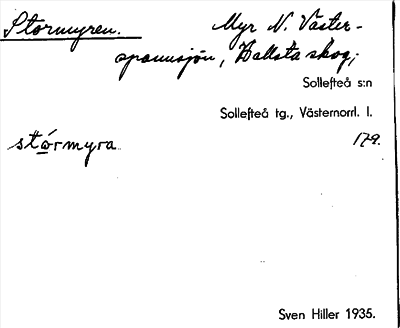 Stormyren. Myr N. Väster-
spannsjön, Hallsta skog,
Sollefteå s:n
Sollefteå tg., Västernorrl. l.
stórmyra 179.
Sven Hiller 1935.